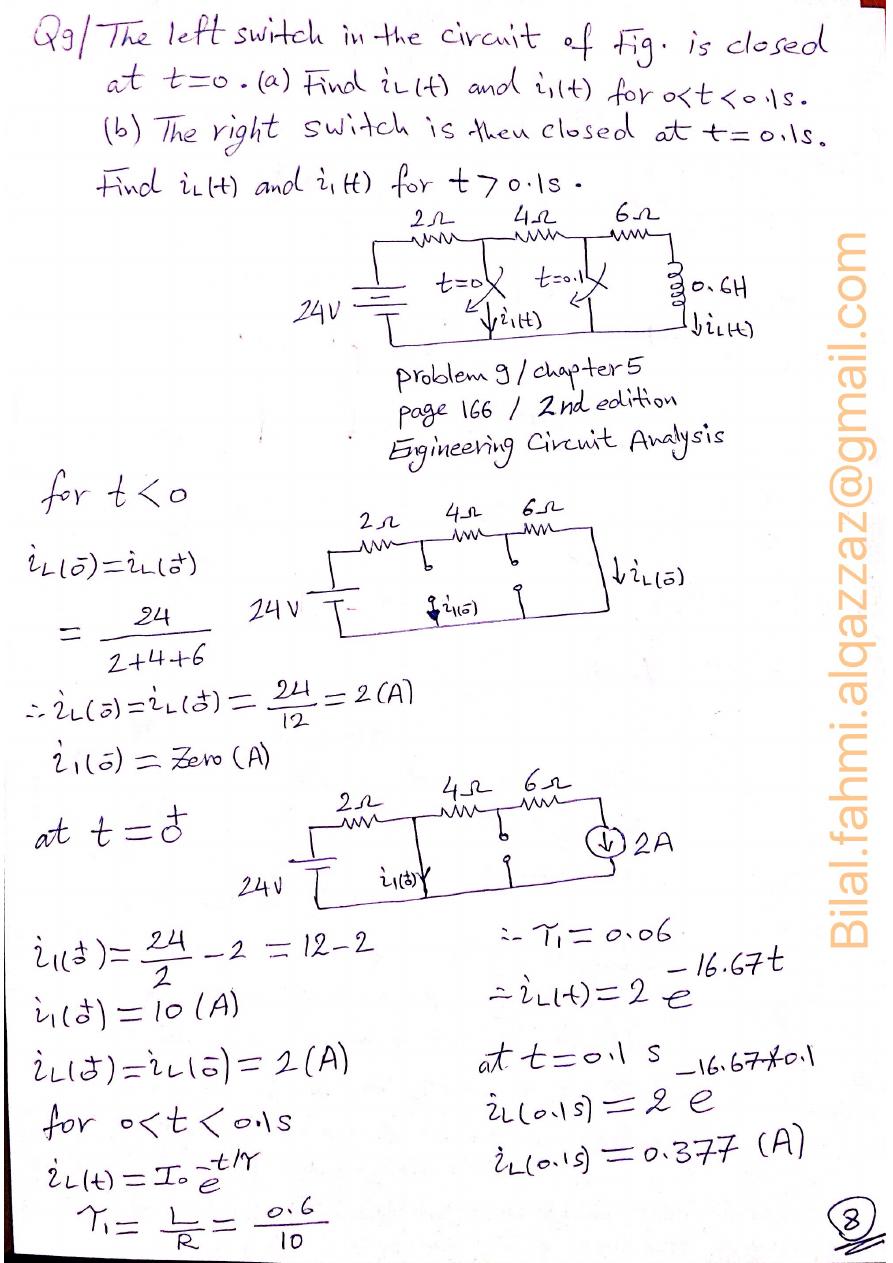 Q9/ The left switch in the circuit of Fig. is closed
at t=0. (a) Find iL(t) and i1(t) for 0<t<0.1s.
(b) The right switch is then closed at t=0.1s.
Find iL(t) and i1(t) for t>0.1s.
2Ω 4Ω 6Ω
24V t=0 t=0.1 0.6H
i1(t) iL(t)
problem 9 / chapter 5
page 166 / 2nd edition
Engineering Circuit Analysis
for t<0
2Ω 4Ω 6Ω
iL(0⁻)=iL(0⁺)
24V i1(0⁻) iL(0⁻)
= 24/(2+4+6)
∴ iL(0⁻)=iL(0⁺)= 24/12 = 2(A)
i1(0⁻) = Zero (A)
at t=0⁺
2Ω 4Ω 6Ω
24V i1(0⁺) 2A
i1(0⁺)= 24/2 -2 = 12-2
i1(0⁺) = 10 (A)
iL(0⁺)=iL(0⁻)= 2(A)
for 0<t<0.1s
iL(t)=I₀ e^-t/τ
τ1= L/R = 0.6/10
∴ τ1= 0.06
∴ iL(t)= 2 e^-16.67t
at t=0.1 s
iL(0.1s)= 2 e^-16.67*0.1
iL(0.1s)=0.377 (A)
8
Bilal.fahmi.alqazzaz@gmail.com